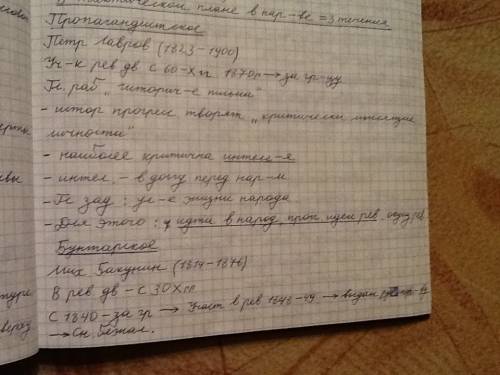 В тактическом плане в нар-ве = 3 течения
Пропагандистское
Петр Лавров (1823-1900)
Уч-к рев дв с 60-х гг 1870г → за гр-цу
Гл. раб „историч-е письма"
- истор прогресс творят „критически мыслящие
личности"
- наиболее критична интел-я
- интел. - в долгу перед нар-м
- Гл зад: ул-е жизни народа
- Для этого: идти в народ, проп идеи рев,
Бунтарское
Мих Бакунин (1814-1876)
В рев дв - с 30х гг
С 1840 - за гр → Участ в рев 1848-49 → выдан
→ Сн бежал.